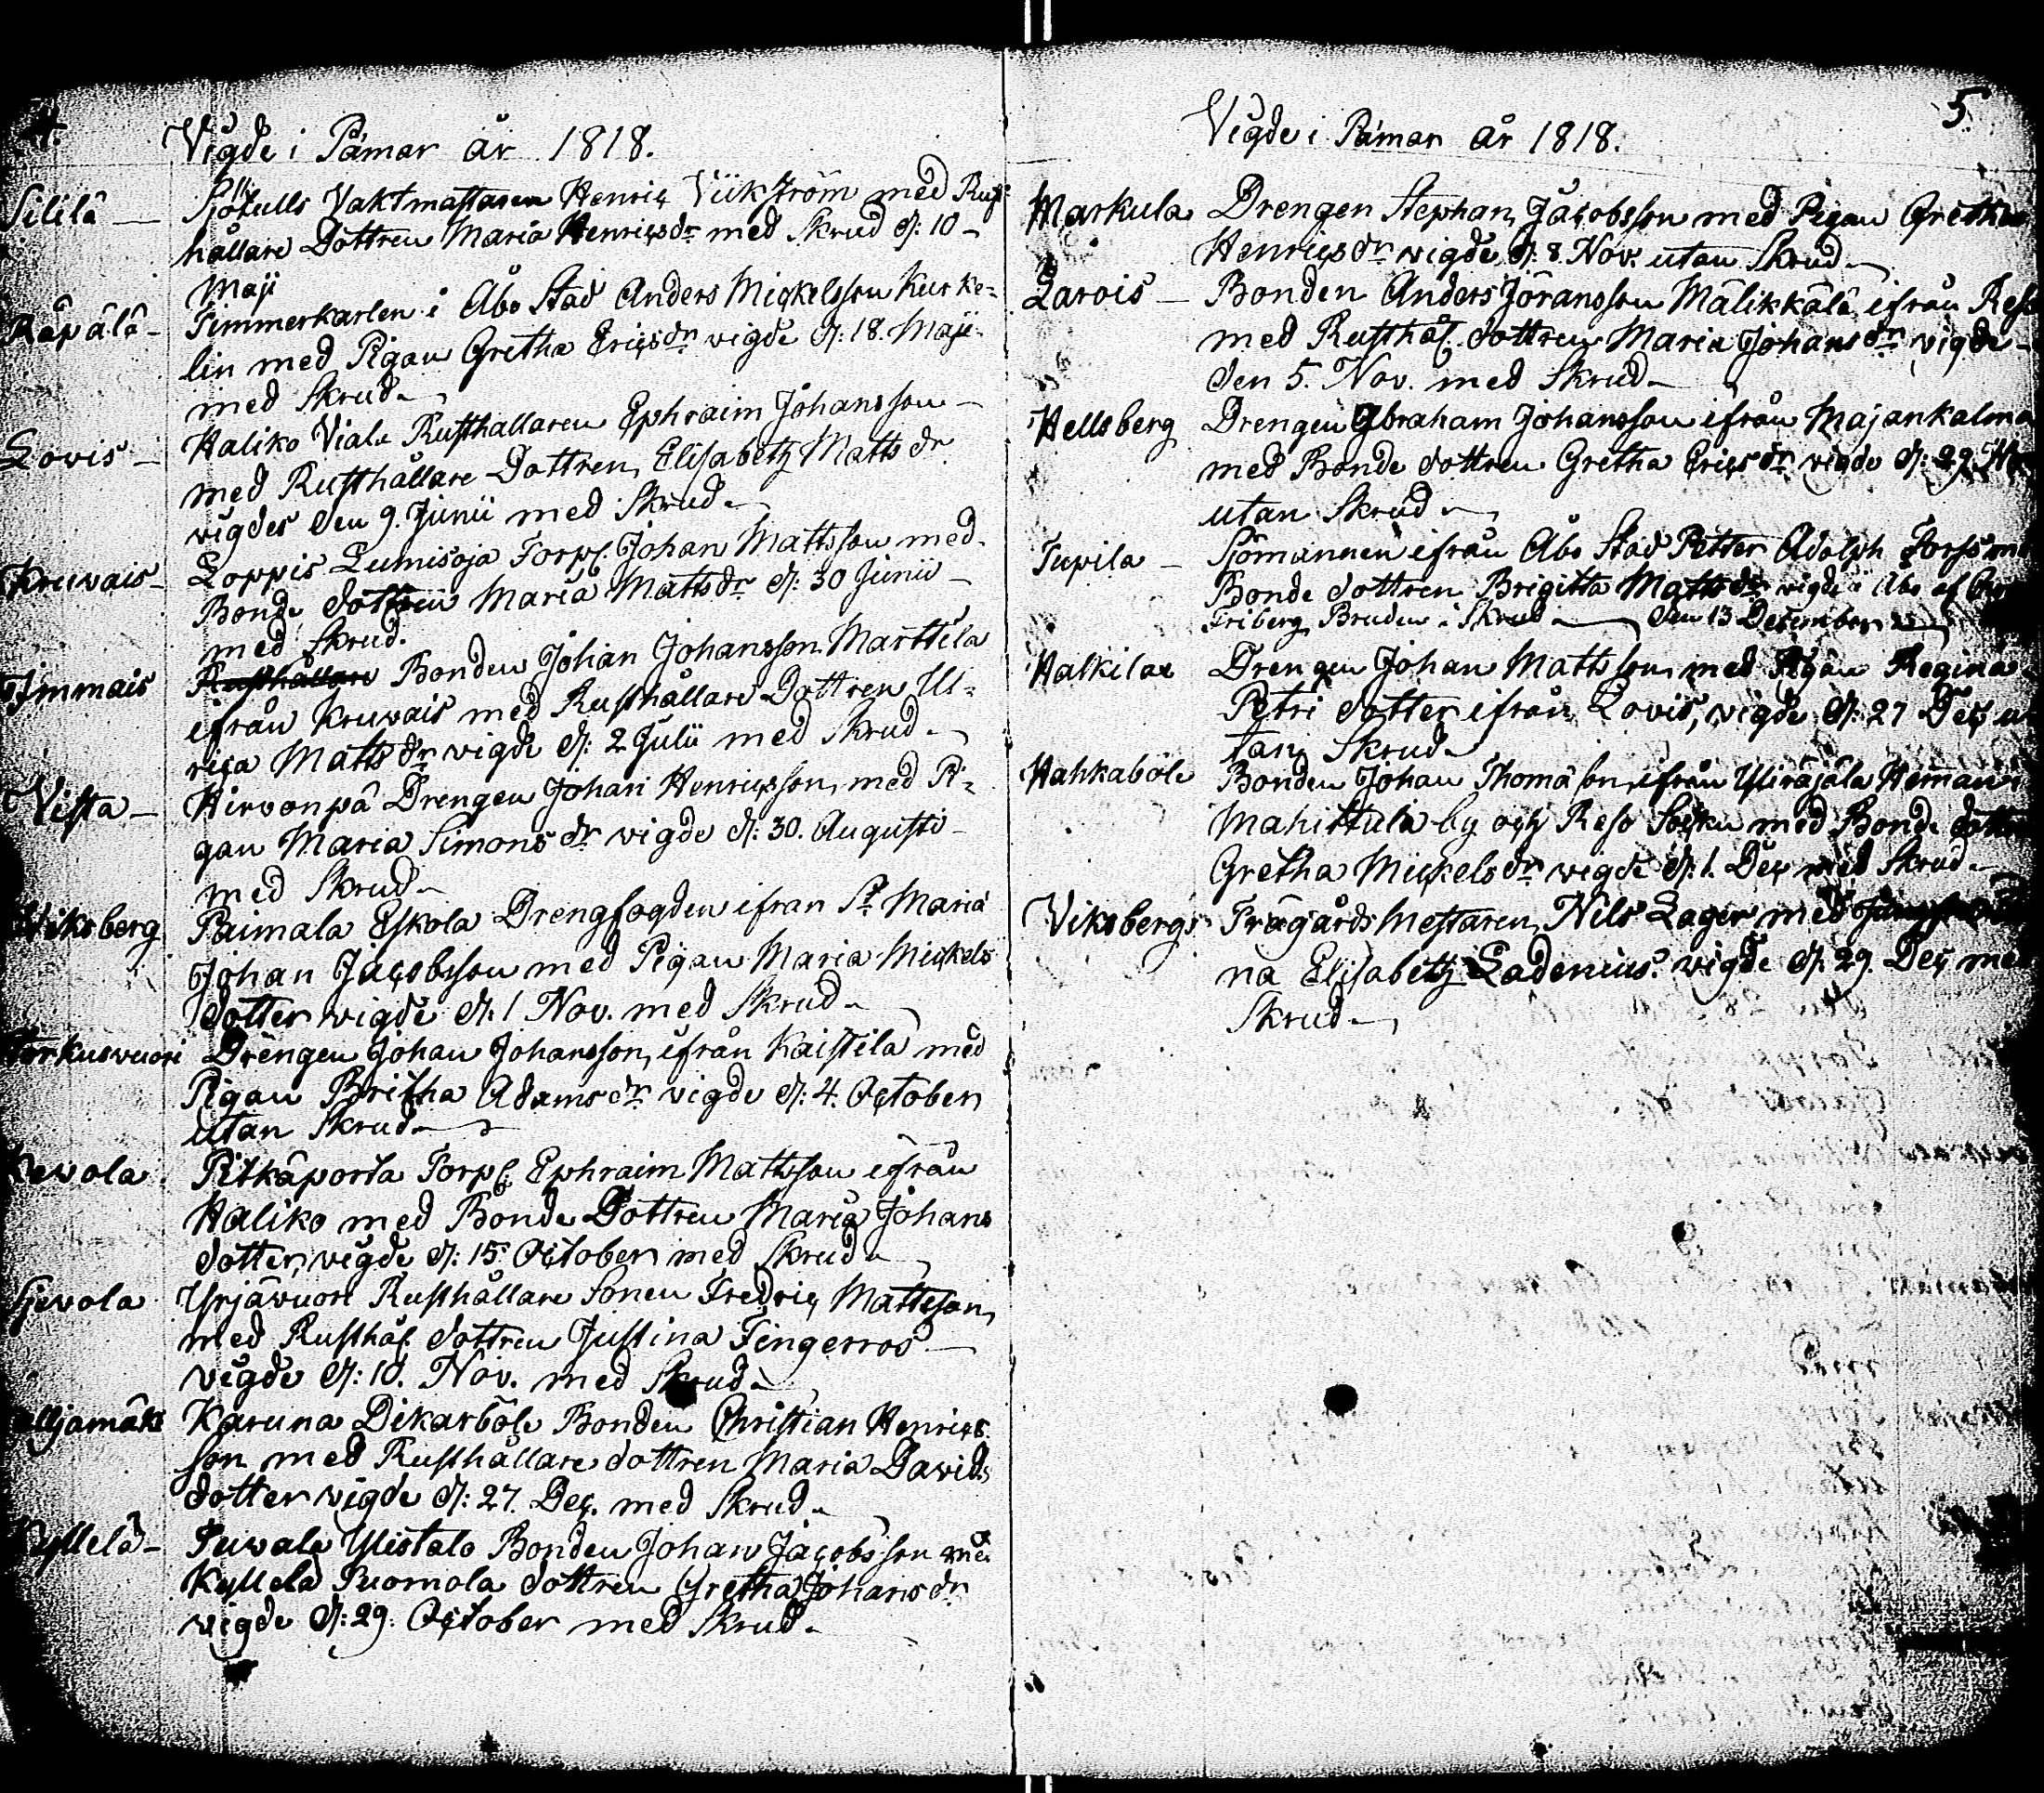 4.
Vigde i Pämar år 1818.
Sililä — Sjötulls Vaktmästaren Henric Vikström med Rust
hållare Dottren Maria Henricsdr med Skrud d: 10 —
Maji
Räpälä — Timmerkarlen i Åbo Stad Anders Mickelsson Kurke-
lin med Pigan Gretha Ericsdr vigde d: 18. Maji
med Skrud
Lovis — Haliko Viala Rusthållaren Ephraim Johansson —
med Rusthållare Dottren Elisabeth Matts dr
vigdes den 9. Junii med Skrud
Kruvais — Loppis Lumisoja Torp. Johan Mattsson med
Bonde dottren Maria Mattsdr d: 30 Junii —
med Skrud.
Immais Rusthållare Bonden Johan Johansson Marttela
ifrån Kruvais med Rusthållare Dottren Ul-
rica Matts dr vigde d: 2 Julii med Skrud
Vista — Hirvonpä Drengen Johan Henricsson, med Pi-
gan Maria Simons dr vigde d: 30. Augusti —
med Skrud
Viksberg Paimala Eskola Drengfogden ifrån St Maria
Johan Jacobsson med Pigan Maria Mickels
dotter vigde d: 1 Nov. med Skrud
Torkusvuori Drengen Johan Johansson, ifrån Kaistila med
Pigan Britha Adamsdr vigde d: 4. October
utan Skrud
Kevola Pitkäporta Torp. Ephraim Mattsson ifrån
Haliko med Bonde Dottren Maria Johans
dotter, vigde d: 15 October med Skrud
Sjevola Yrjävuori Rusthållare Sonen Fredric Mattsson,
med Rusthål. dottren Justina Fingerroos —
vigde d: 10. Nov. med Skrud
Karuna Dikarböle Bonden Christian Henrics
son med Rusthållare dottren Maria Davids
dotter vigde d: 27. Dec. med Skrud
Kyllelä — Tuvala Ylistalo Bonden Johan Jacobsson med
Kyllelä Puomola dottren Gretha Johansdr
vigde d: 29. October med Skrud
5.
Vigde i Pämar år 1818.
Markula Drengen Stephan Jacobsson med Pigan Gretha
Henricsdr vigde d: 8. Nov. utan Skrud
Larois — Bonden Anders Jöransson Mälikkälä ifrån Reso
med Rusthål. dottren Maria Johansdr vigde —
den 5. Nov. med Skrud
Hellsberg Drengen Abraham Johansson ifrån Majankalma
med Bonde dottren Gretha Ericsdr vigde d: 29.
utan Skrud
Tupila — Sjömannen ifrån Åbo Stad Petter Adolph
Bonde dottren Brigitta Mattsdr vigde i Åbo af
Friberg Bruden i Skrud — den 13 December
Halkilax Drengen Johan Mattsson med Pigan Regina
Petri dotter ifrån Lovis, vigde d: 27 Dec u
tan Skrud
Hahkaböle Bonden Johan Thomäson, ifrån Yliräjälä Heman i
Mahittula by och Reso Socku med Bonde dottren
Gretha Mickelsdr vigde d: 1. Dec med Skrud
Viksbergs Trägårds Mestaren, Nils Lager med
na Elisabeth Ladenius. vigde d: 29. Dec med
Skrud